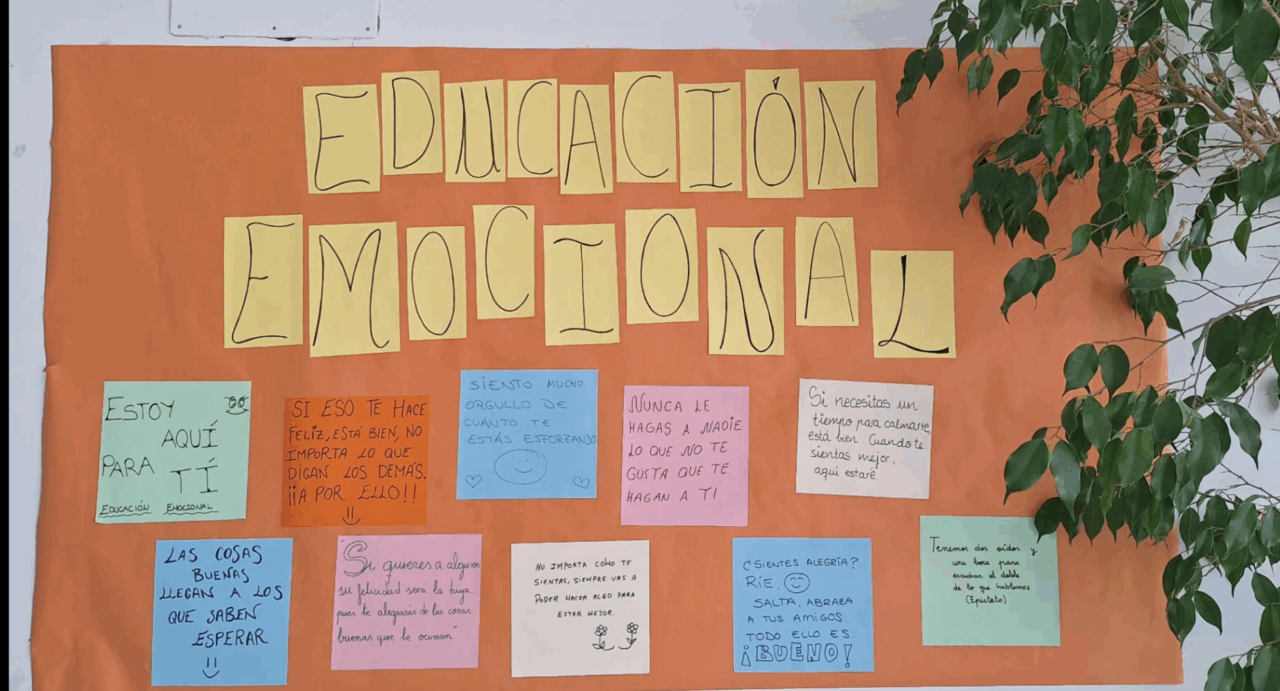 EDUCACIÓN
EMOCIONAL
ESTOY
AQUÍ
PARA TÍ
EDUCACIÓN EMOCIONAL
SI ESO TE HACE
FELIZ, ESTÁ BIEN, NO
IMPORTA LO QUE
DIGAN LOS DEMÁS.
¡¡A POR ELLO!!
SIENTO MUCHO
ORGULLO DE
CUÁNTO TE
ESTÁS ESFORZANDO
NUNCA LE
HAGAS A NADIE
LO QUE NO TE
GUSTA QUE TE
HAGAN A TI
Si necesitas un
tiempo para calmarte,
está bien. Cuando te
sientas mejor,
aquí estaré.
LAS COSAS
BUENAS
LLEGAN A LOS
QUE SABEN
ESPERAR
"Si quieres a alguien
su felicidad será la tuya,
pues te alegrarás de las cosas
buenas que le ocurran"
NO IMPORTA CÓMO TE
SIENTAS, SIEMPRE VAS A
PODER HACER ALGO PARA
ESTAR MEJOR.
¿SIENTES ALEGRÍA?
RÍE,
SALTA, ABRAZA
A TUS AMIGOS
TODO ELLO ES...
¡BUENO!
Tenemos dos oídos y
una boca para
escuchar el doble
de lo que hablamos
(Epicteto)